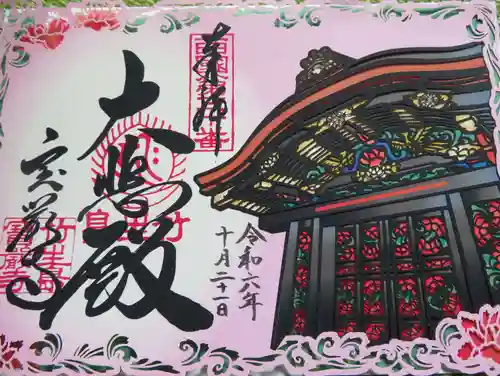 令和六年
十月二十一日
奉拝
大悲殿
宝厳寺